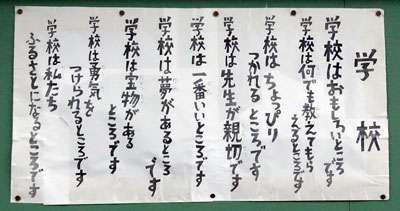 学校
学校はおもしろいところ
です
学校は何でも教えてもら
えるところです
学校はちょっぴり
つかれるところです
学校は先生が親切です
学校は一番いいところです
学校は夢があるところ
です
学校は宝物がある
ところです
学校は勇気を
つけられるところです
学校は私たち
ふるさとになるところです